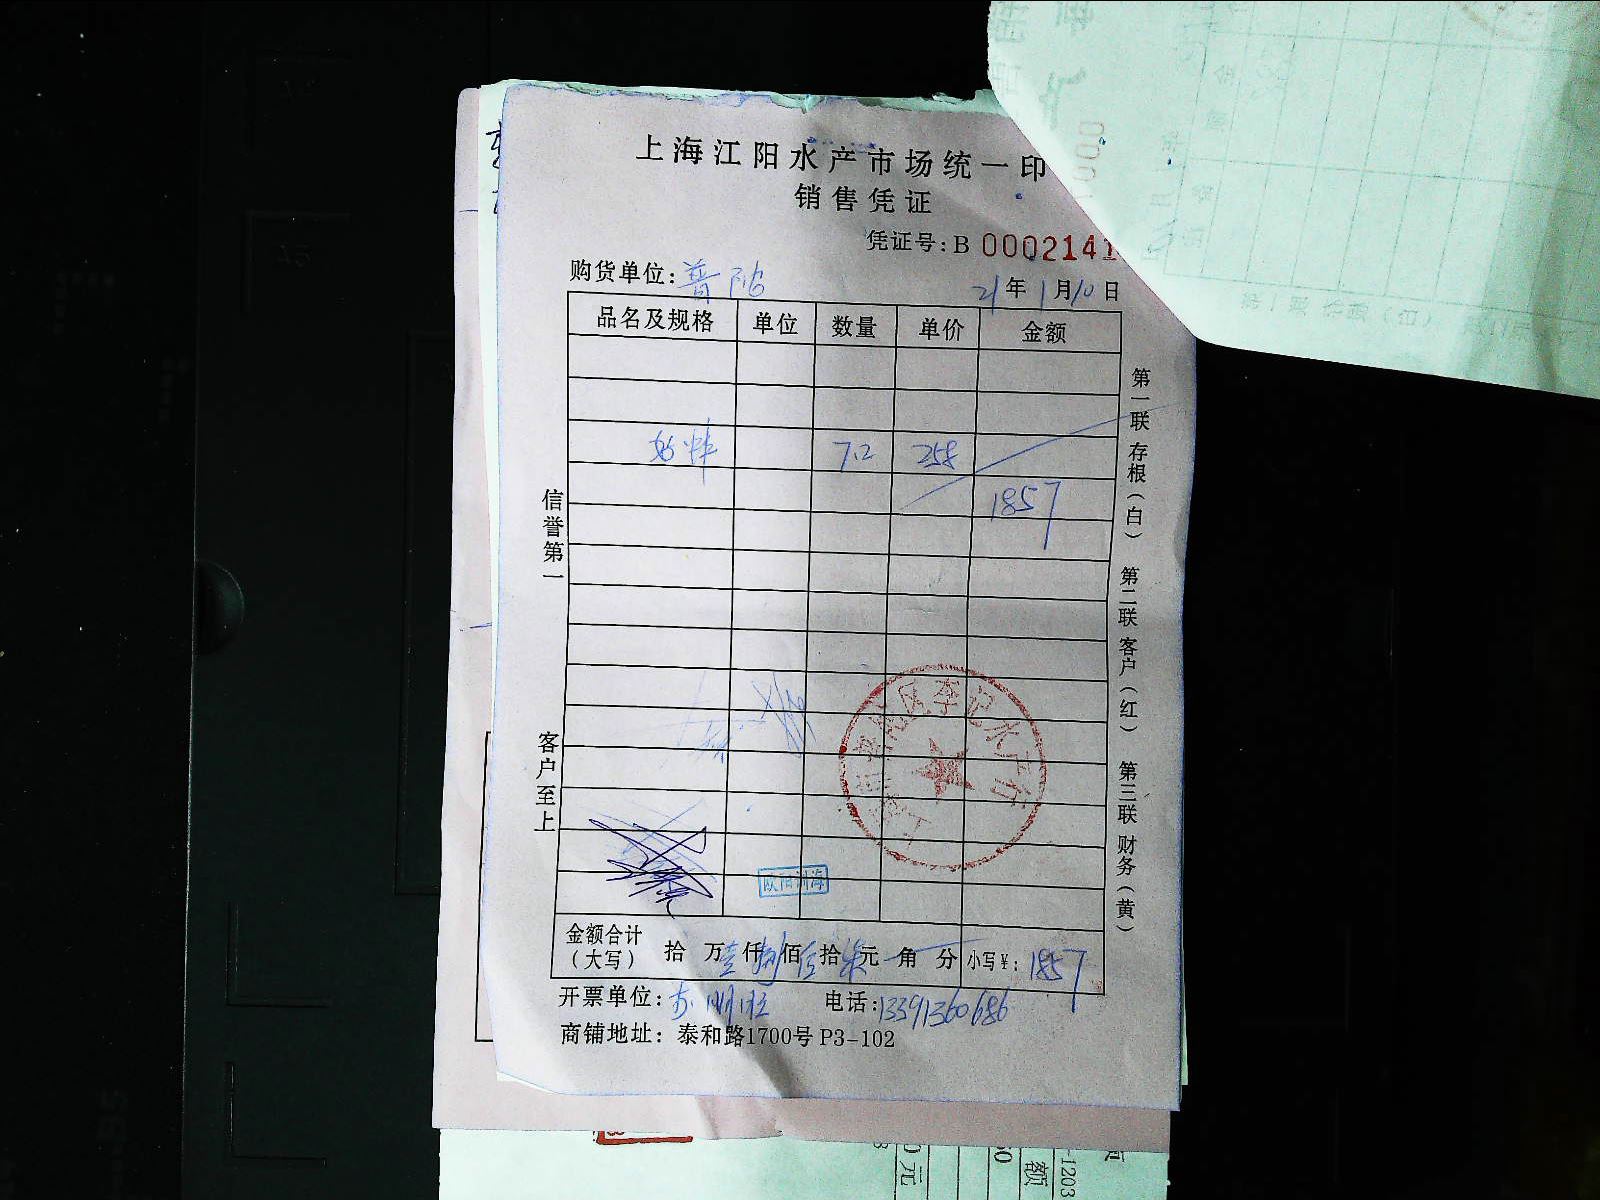 上海江阳水产市场统一印
销售凭证
凭证号:B 0002141
购货单位:普陀
21年1月10日
品名及规格 单位 数量 单价 金额
7.2 258
1857
信誉第一
客户至上
第一联 存根(白) 第二联 客户(红) 第三联 财务(黄)
李记水产行
欧阳
金额合计
(大写) 拾 万壹仟捌佰拾柒元 角 分 小写¥: 1857
开票单位:
电话:13391360686
商铺地址: 泰和路1700号 P3-102
0元
额
-1203